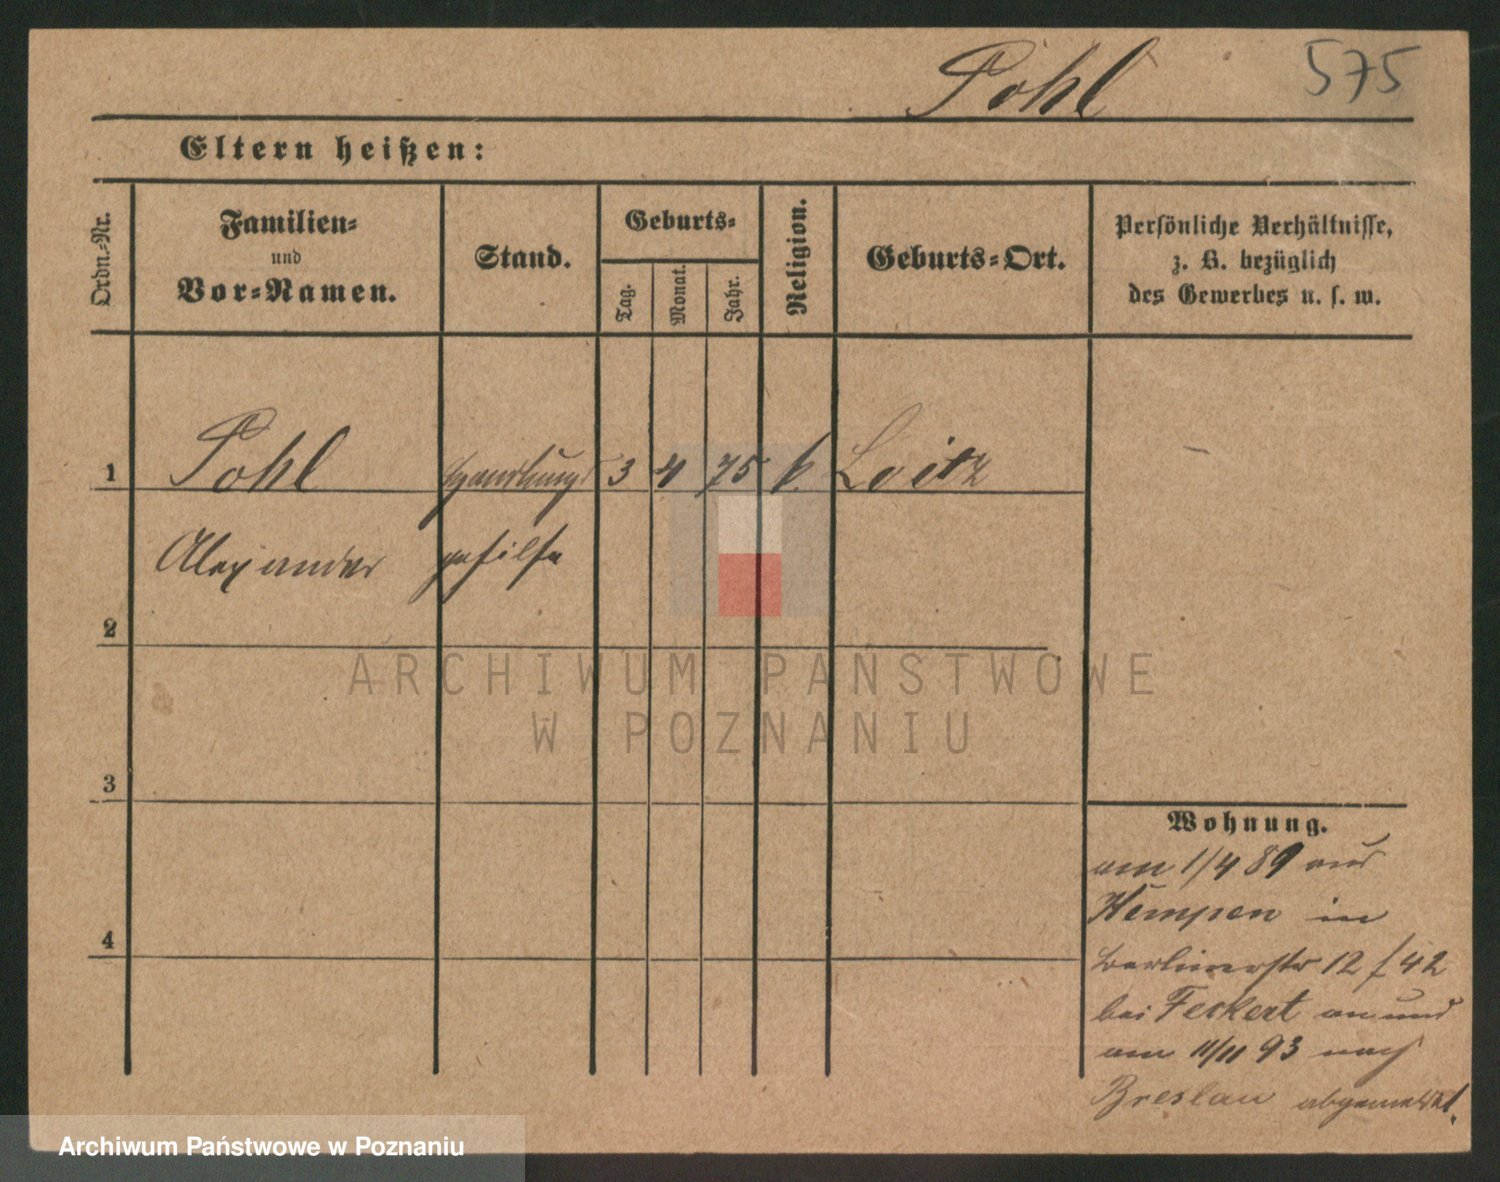 Pohl 575
Eltern heißen:
Ordn.-Nr.
Familien-
und
Vor-Namen.
Stand.
Geburts-
Tag.
Monat.
Jahr.
Religion.
Geburts-Ort.
Persönliche Verhältnisse,
z. B. bezüglich
des Gewerbes u. s. w.
1 Pohl Handlungs 3 4 75 k. Loitz
Alexander gehilfe
2
ARCHIWUM PAŃSTWOWE
W POZNANIU
3
4
Wohnung.
am 1/4 89 aus
Kempen in
Berlinerstr 12 f 42
bei Feckert an und
am 11/11 93 nach
Breslau abgemeldet.
Archiwum Państwowe w Poznaniu